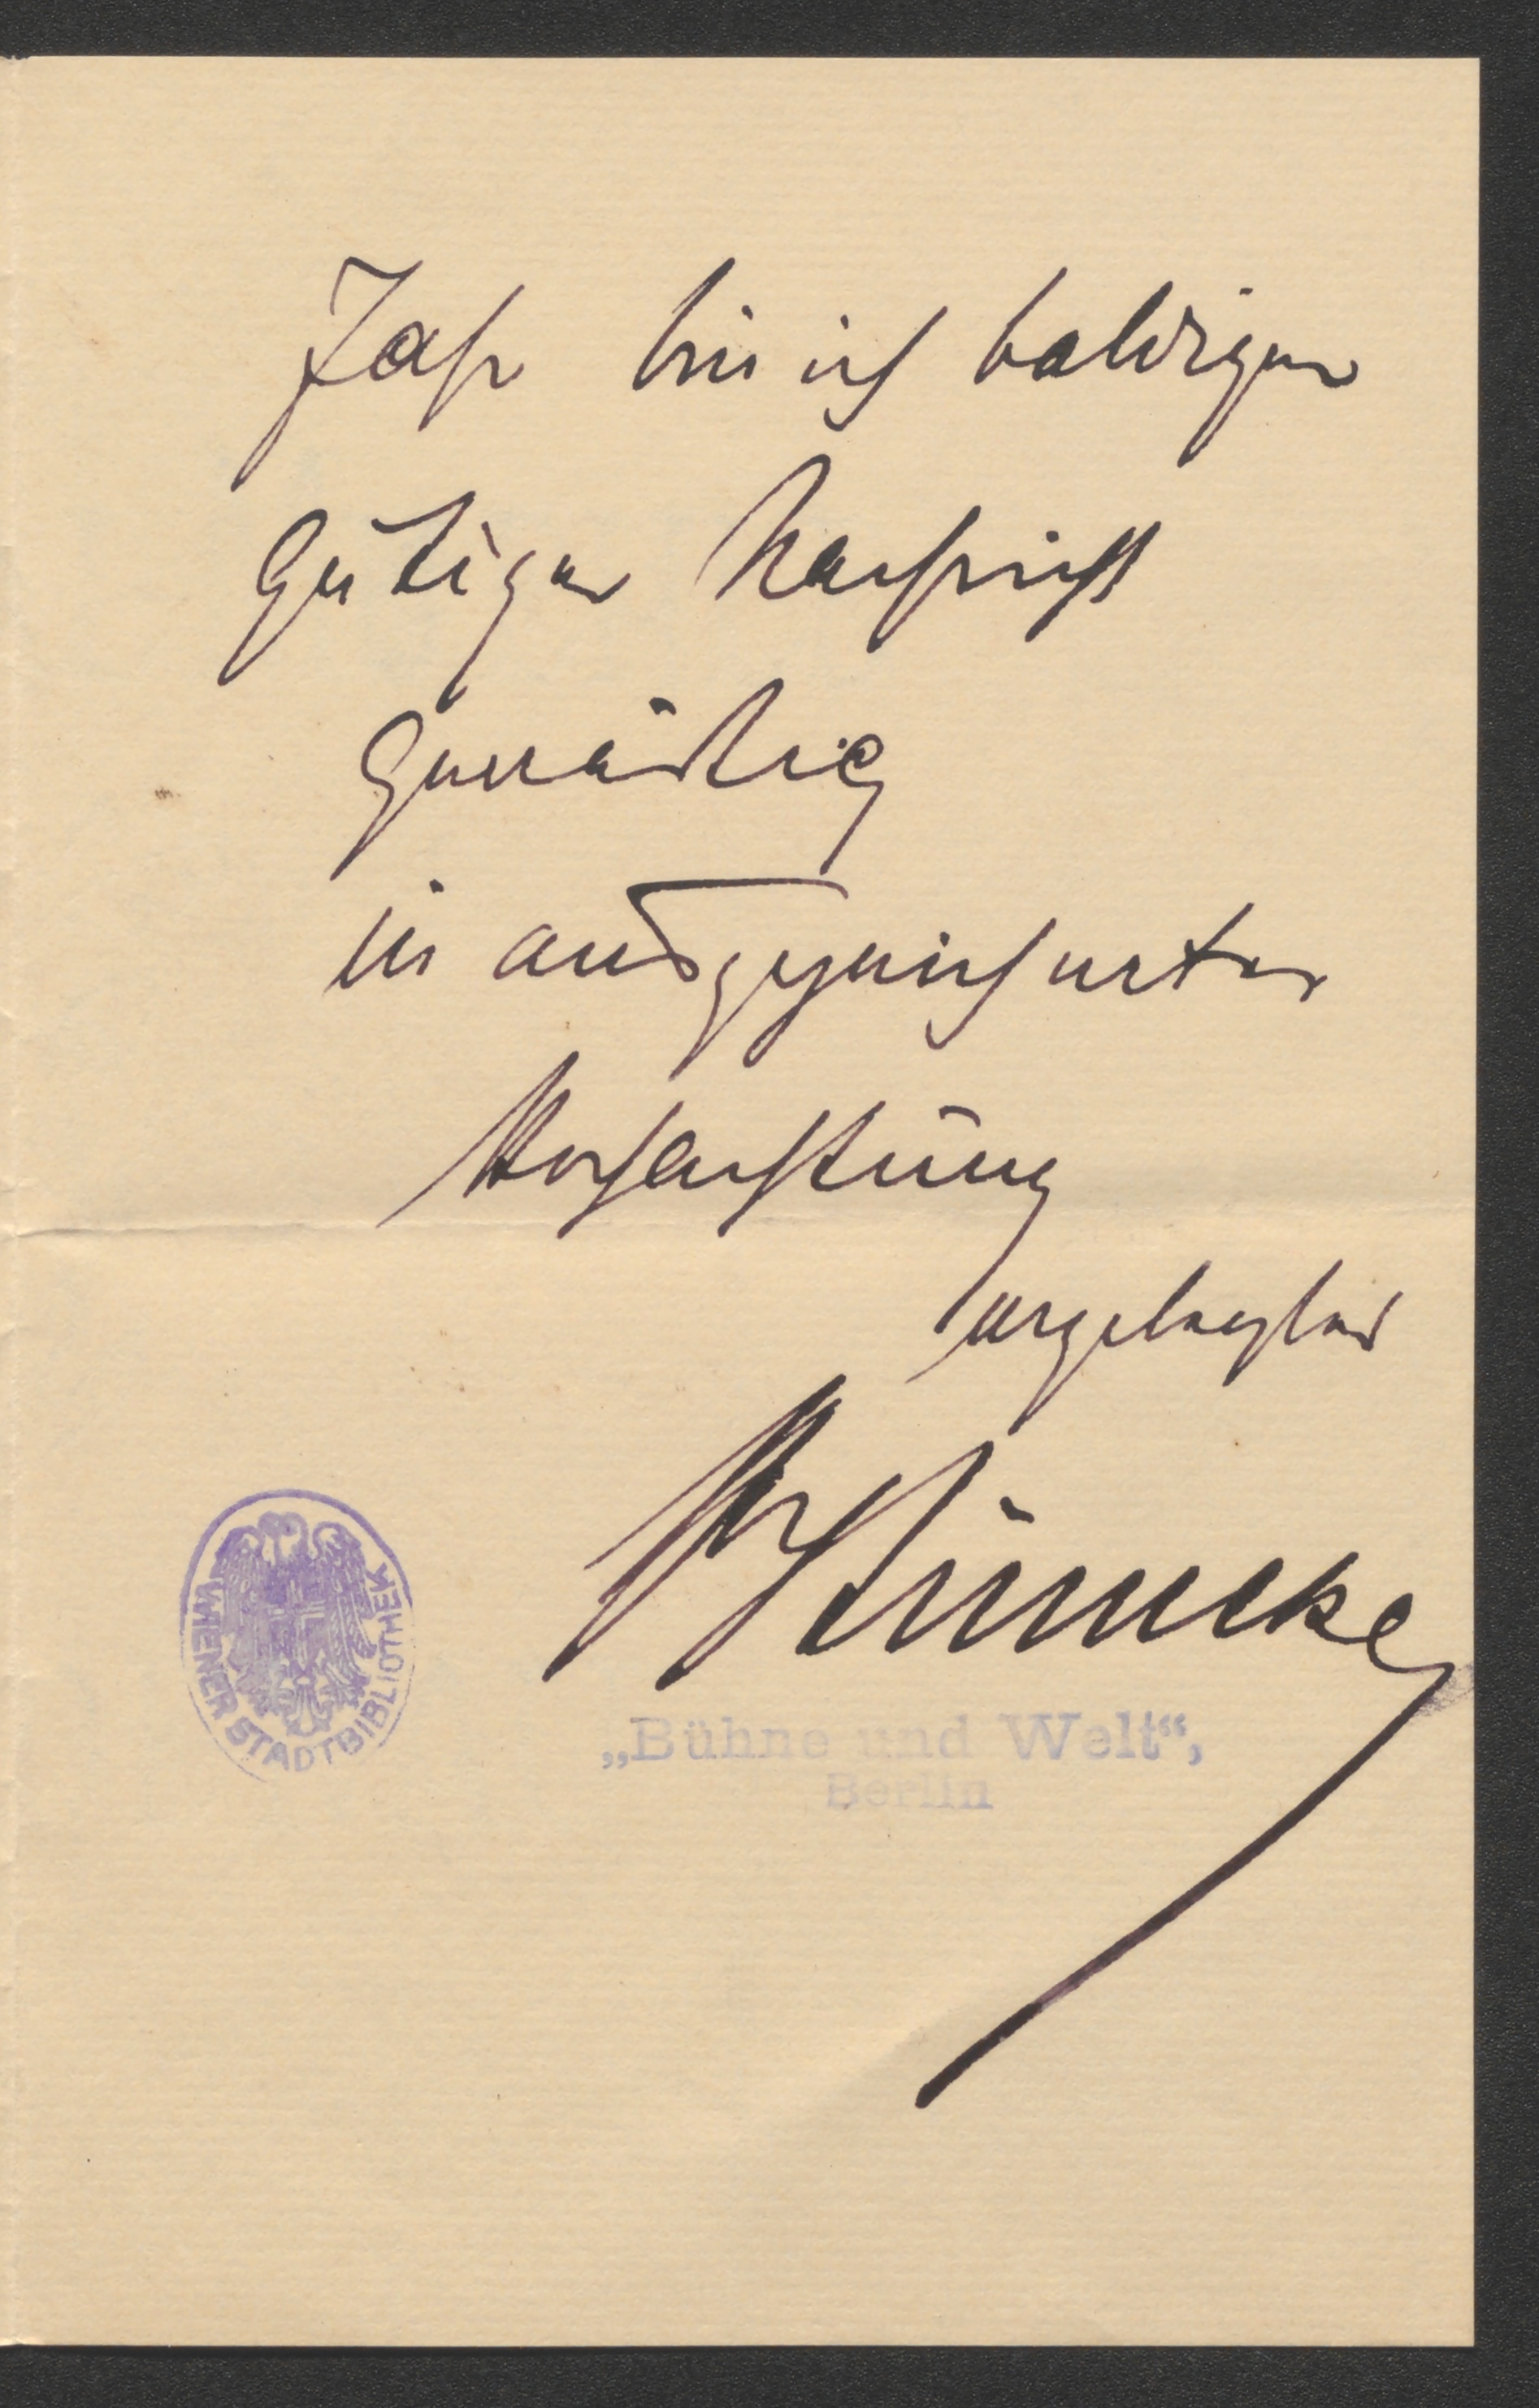 Jahr bin ich baldiger
gütiger Nachricht
gewärtig
in ausgezeichneter
Hochachtung
ergebenster
HStümcke
„Bühne und Welt“,
Berlin
WIENER STADTBIBLIOTHEK